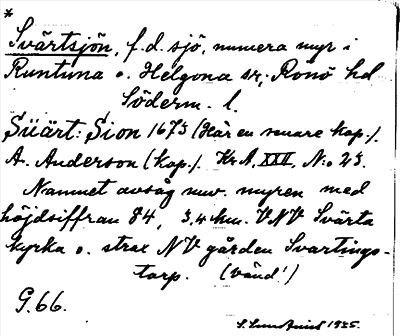 *
Svärtsjön, f.d. sjö, numera myr i
Runtuna o. Helgona sr, Rönö hd
Söderm. l.
Süärt: Sion 1673 (Här en senare kop.).
A. Anderson (kop.). Kr A, XXII, N:o 23.
Namnet avsåg nuv. myren med
höjdsiffran 84, 3,4 km. VNV Svärta
kyrka o. strax NV gården Svartings-
torp. (Vänd!)
G. 66.
1925.